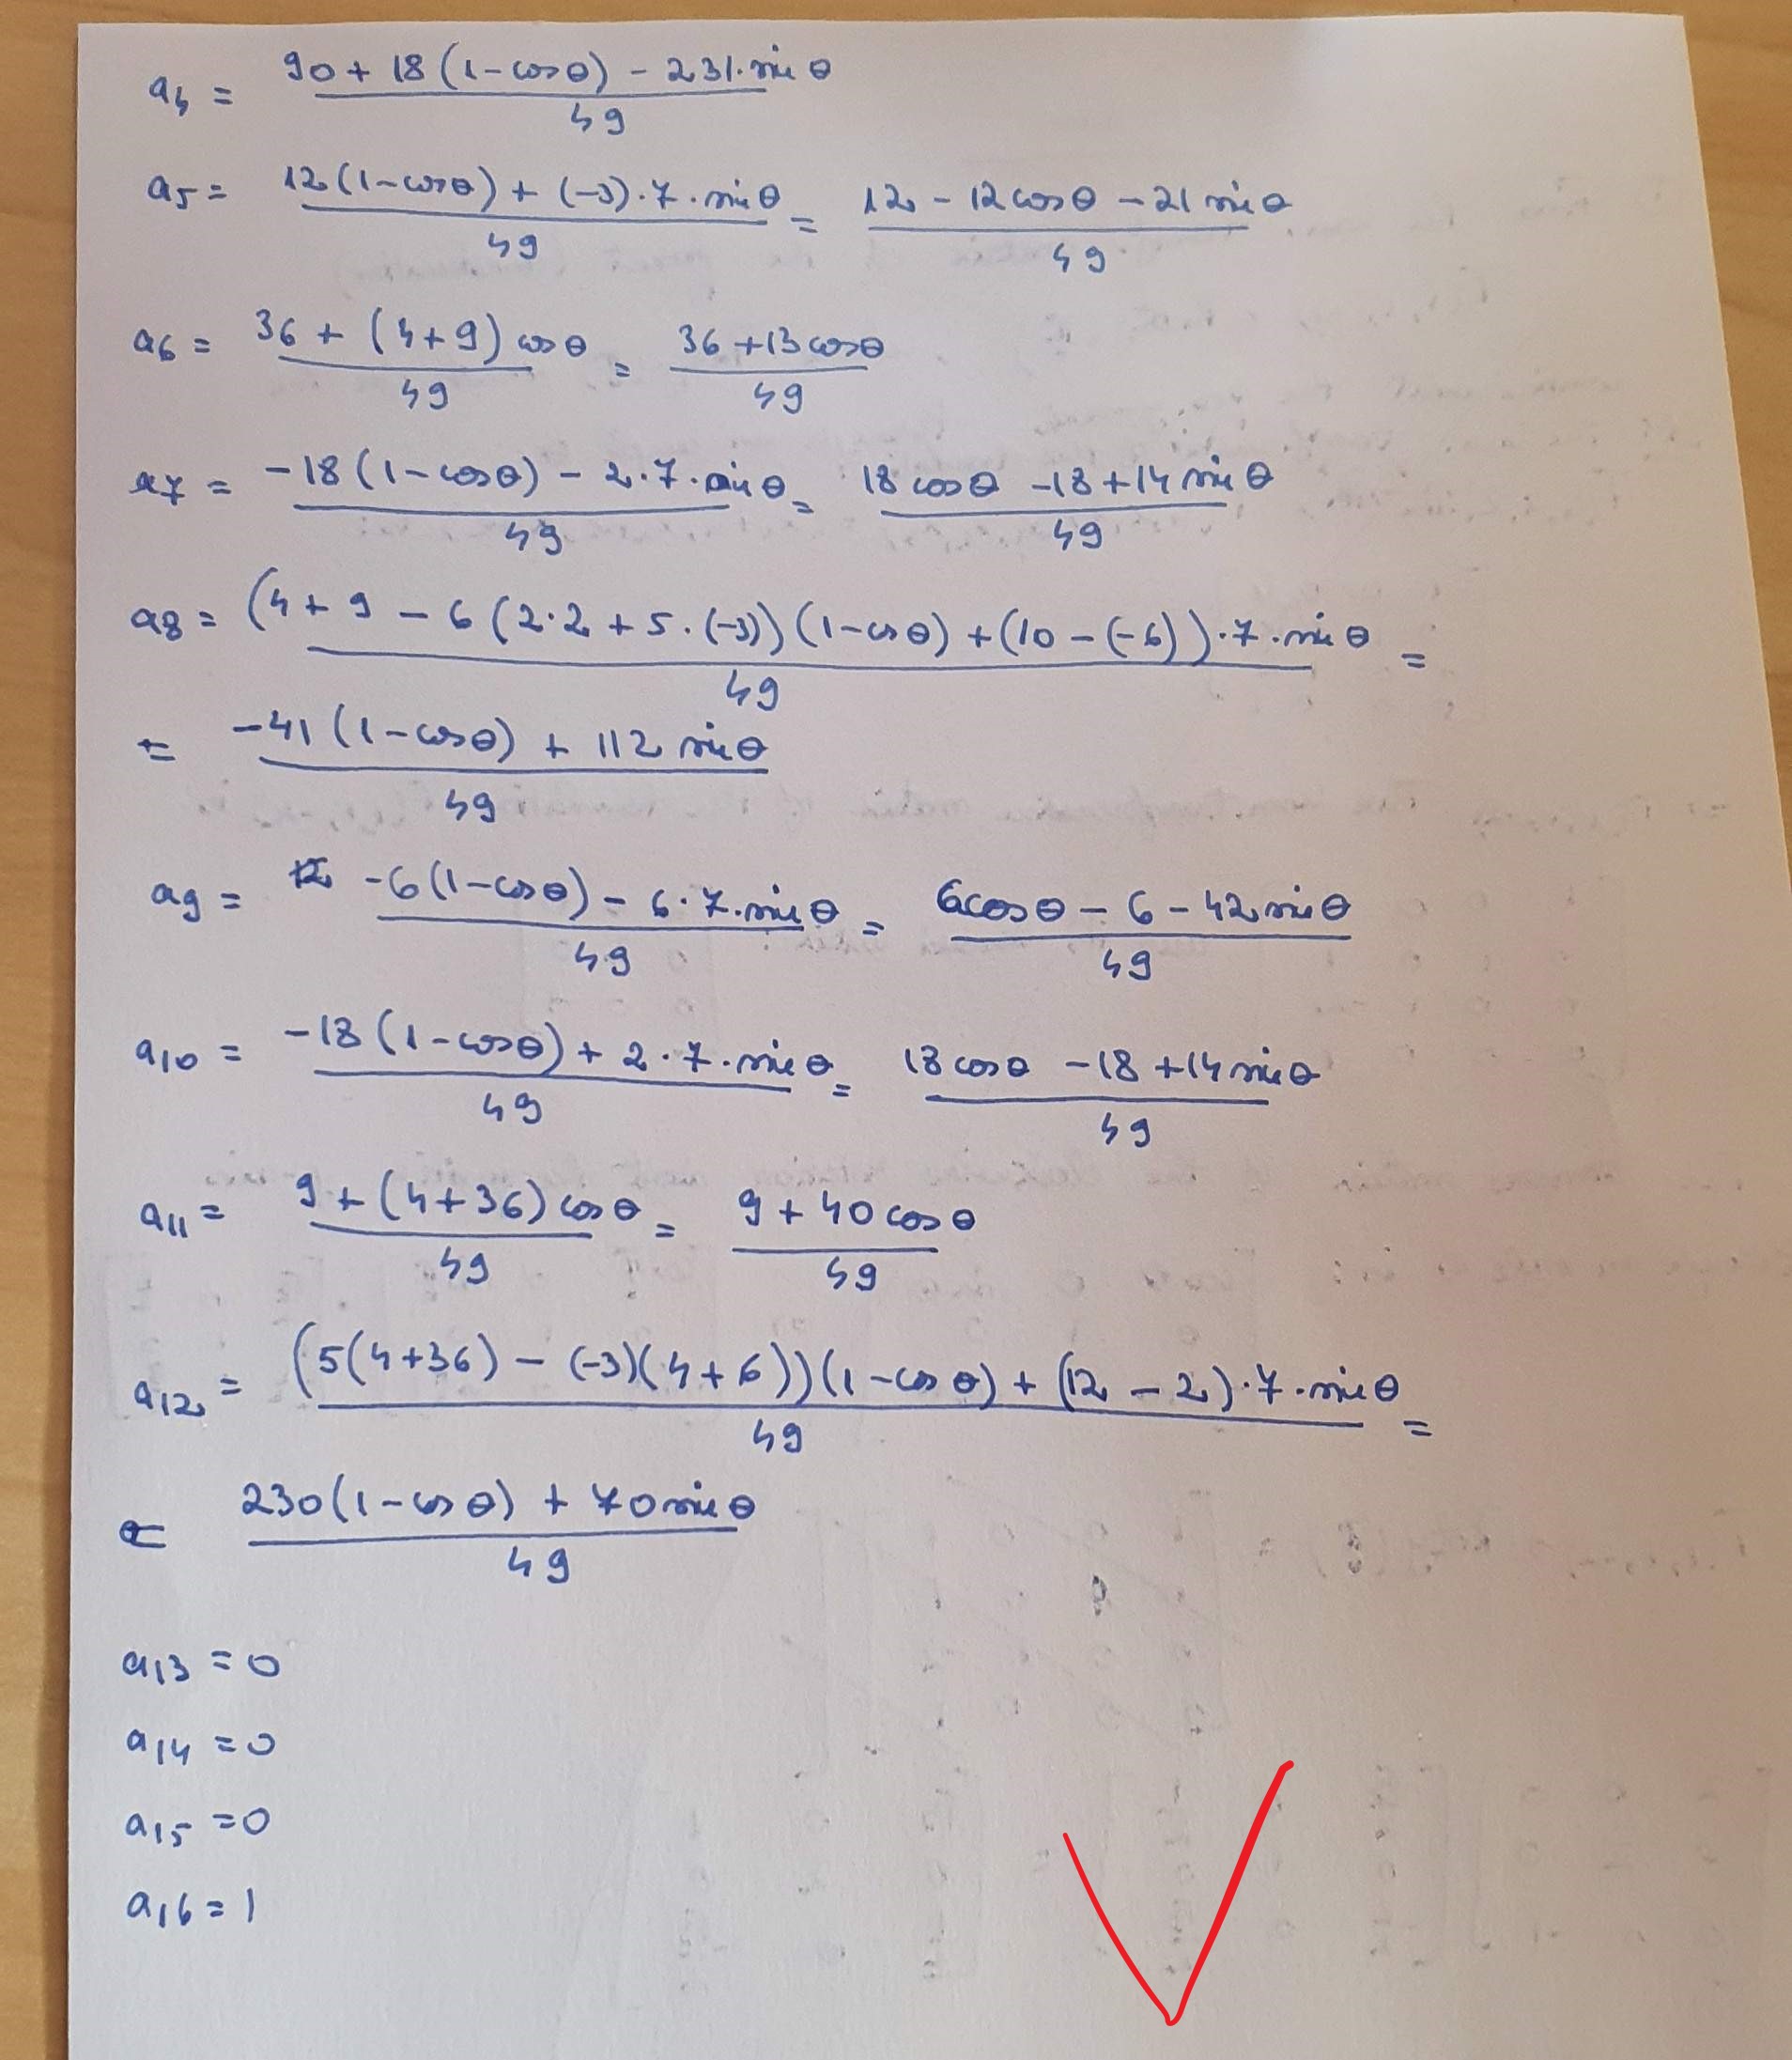 a4 = (90 + 18(1-cosθ) - 231·sinθ)/49
a5 = (12(1-cosθ) + (-3)·7·sinθ)/49 = (12 - 12cosθ - 21sinθ)/49
a6 = (36 + (4+9)cosθ)/49 = (36+13cosθ)/49
a7 = (-18(1-cosθ) - 2·7·sinθ)/49 = (18cosθ - 18 + 14sinθ)/49
a8 = ((4+9 - 6(2·2 + 5·(-3))(1-cosθ) + (10-(-6))·7·sinθ)/49 =
= (-41(1-cosθ) + 112 sinθ)/49
a9 = (-6(1-cosθ) - 6·7·sinθ)/49 = (6cosθ - 6 - 42sinθ)/49
a10 = (-18(1-cosθ) + 2·7·sinθ)/49 = (18cosθ - 18 + 14sinθ)/49
a11 = (9 + (4+36)cosθ)/49 = (9 + 40cosθ)/49
a12 = ((5(4+36) - (-3)(4+6))(1-cosθ) + (12-2)·7·sinθ)/49 =
= (230(1-cosθ) + 70sinθ)/49
a13 = 0
a14 = 0
a15 = 0
a16 = 1